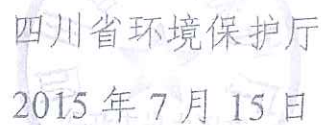 四川省环境保护厅
2015 年 7 月 15 日